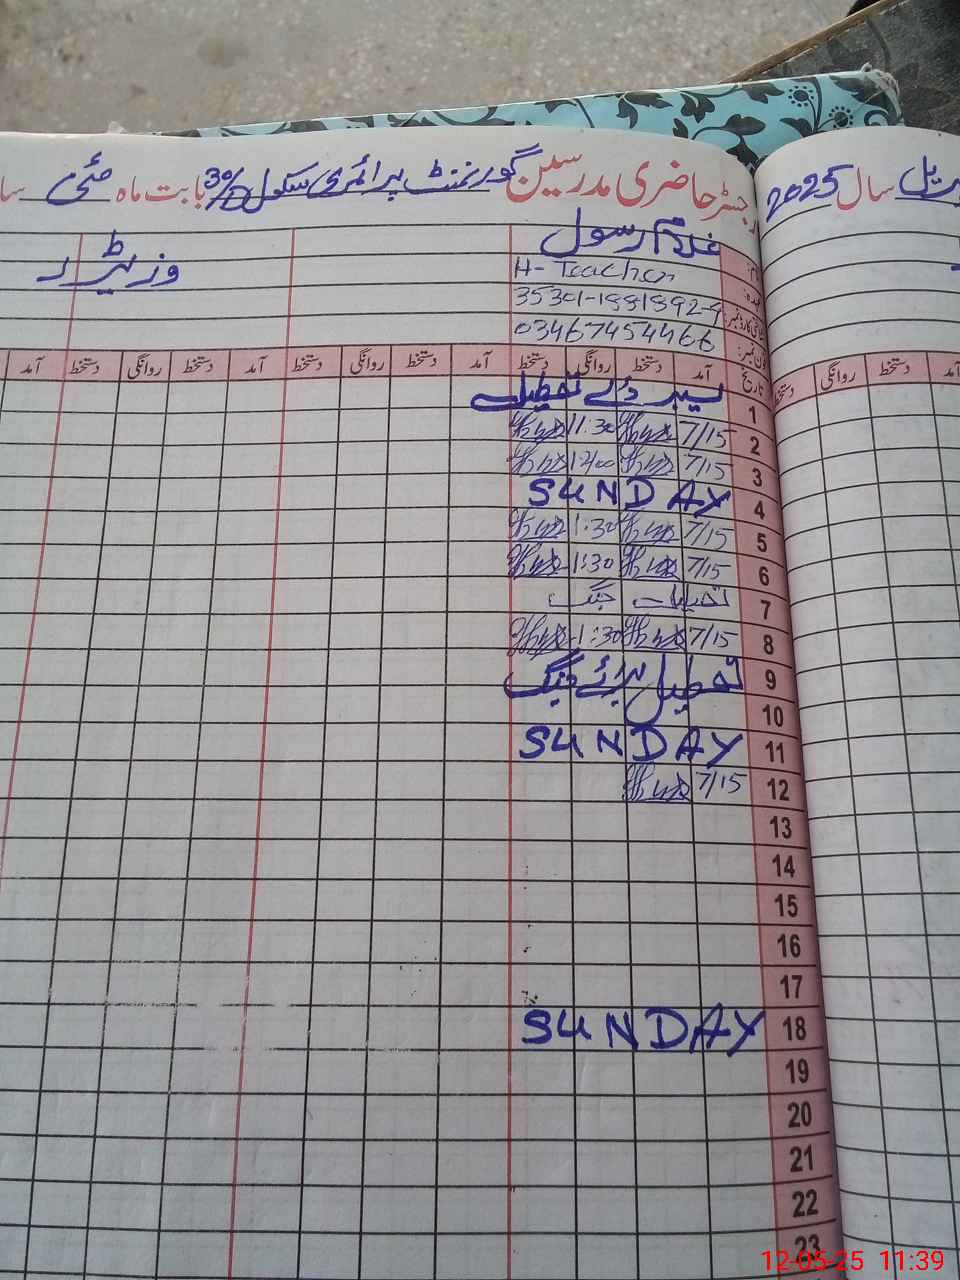 رجسٹر حاضری مدرسین گورنمنٹ پرائمری سکول 30/D بابت ماہ مئی سا
سال 2025
غلام رسول
وزیٹر
H- Teacher
35301-1981892-9
03467454466
تاریخ آمد دستخط روانگی دستخط آمد دستخط روانگی دستخط آمد دستخط روانگی دستخط آمد
دستخط روانگی دستخط آمد
1 لیبر ڈے تعطیل
2 7/15 11:30
3 7/15 1:00
4 SUNDAY
5 7/15 1:30
6 7/15 1:30
7 تعطیلات جنگ
8 7/15 1:30
9 تعطیل برائے جنگ
10
11 SUNDAY
12 7/15
13
14
15
16
17
18 SUNDAY
19
20
21
22
23
12-05-25 11:39